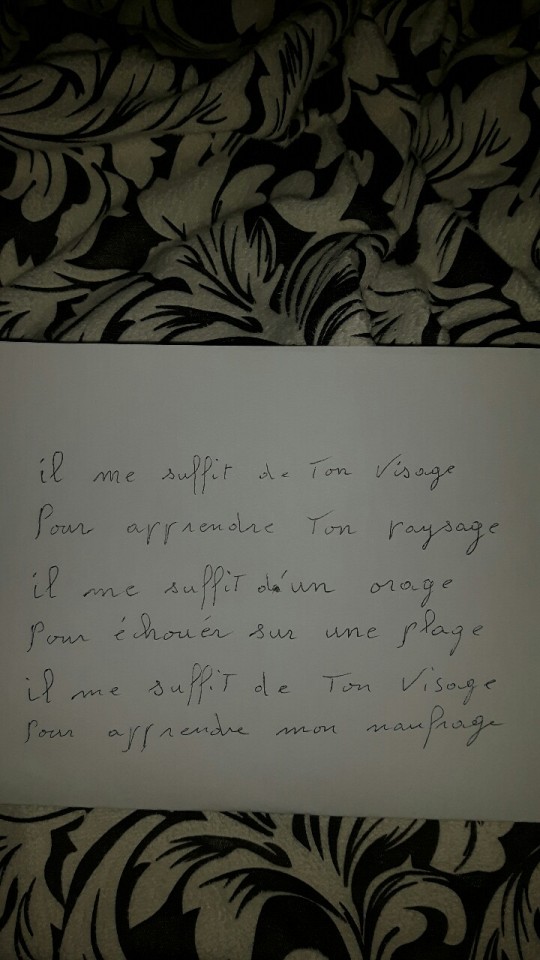 il me suffit de Ton Visage
Pour apprendre Ton paysage
il me suffit d'un orage
Pour échouér sur une plage
il me suffit de Ton Visage
Pour apprendre mon naufrage